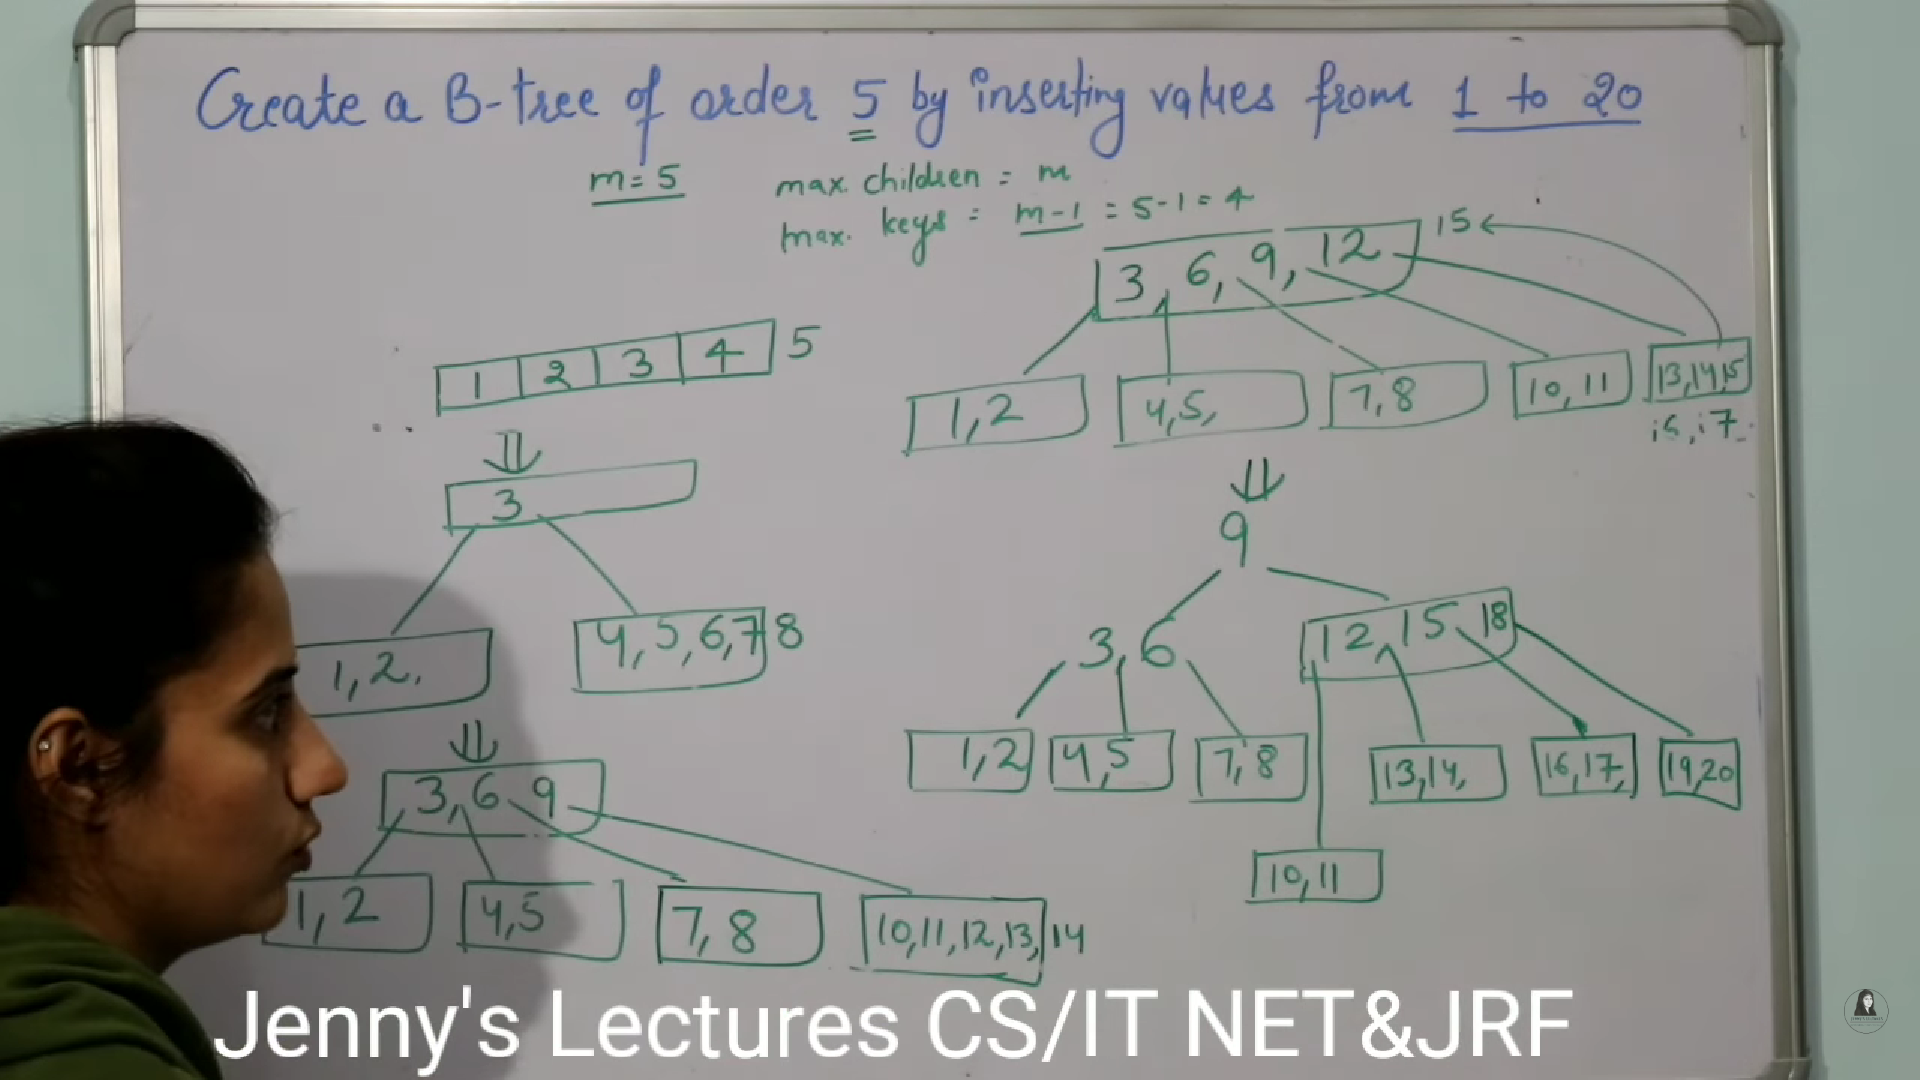 Create a B-tree of order 5 by inserting values from 1 to 20
m=5
max. children = m
max. keys = m-1 = 5-1=4
1 2 3 4 5
3
1,2,
4,5,6,7 8
3,6 9
1,2
4,5
7,8
10,11,12,13, 14
3, 6, 9, 12 15
1,2
4,5,
7,8
10,11
13,14,15
16,17
9
3,6
12, 15, 18
1,2
4,5
7,8
13,14,
16,17,
19,20
10,11
Jenny's Lectures CS/IT NET&JRF